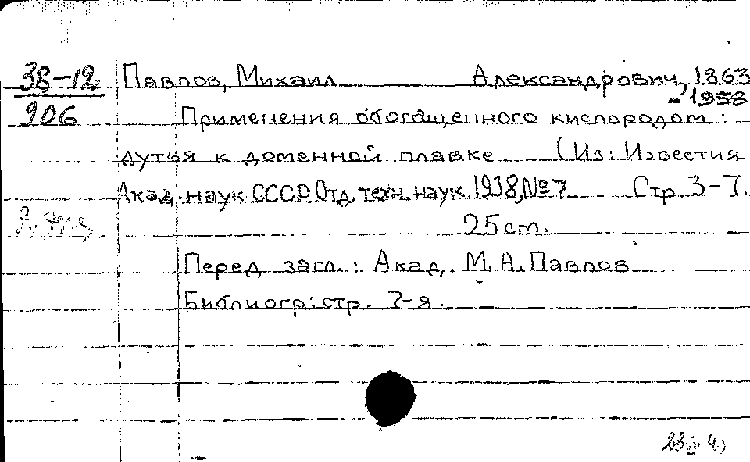 38-12
906
Павлов, Михаил Александрович, 1863
-1958
Применения обогащенного кислородом
дутья к доменной плавке (Из: Известия
Акад. наук СССР. Отд. техн. наук 1938, №7 Стр. 3-7.
25 cm.
Перед загл.: Акад. М. А. Павлов
Библиогр: стр. 7-я.